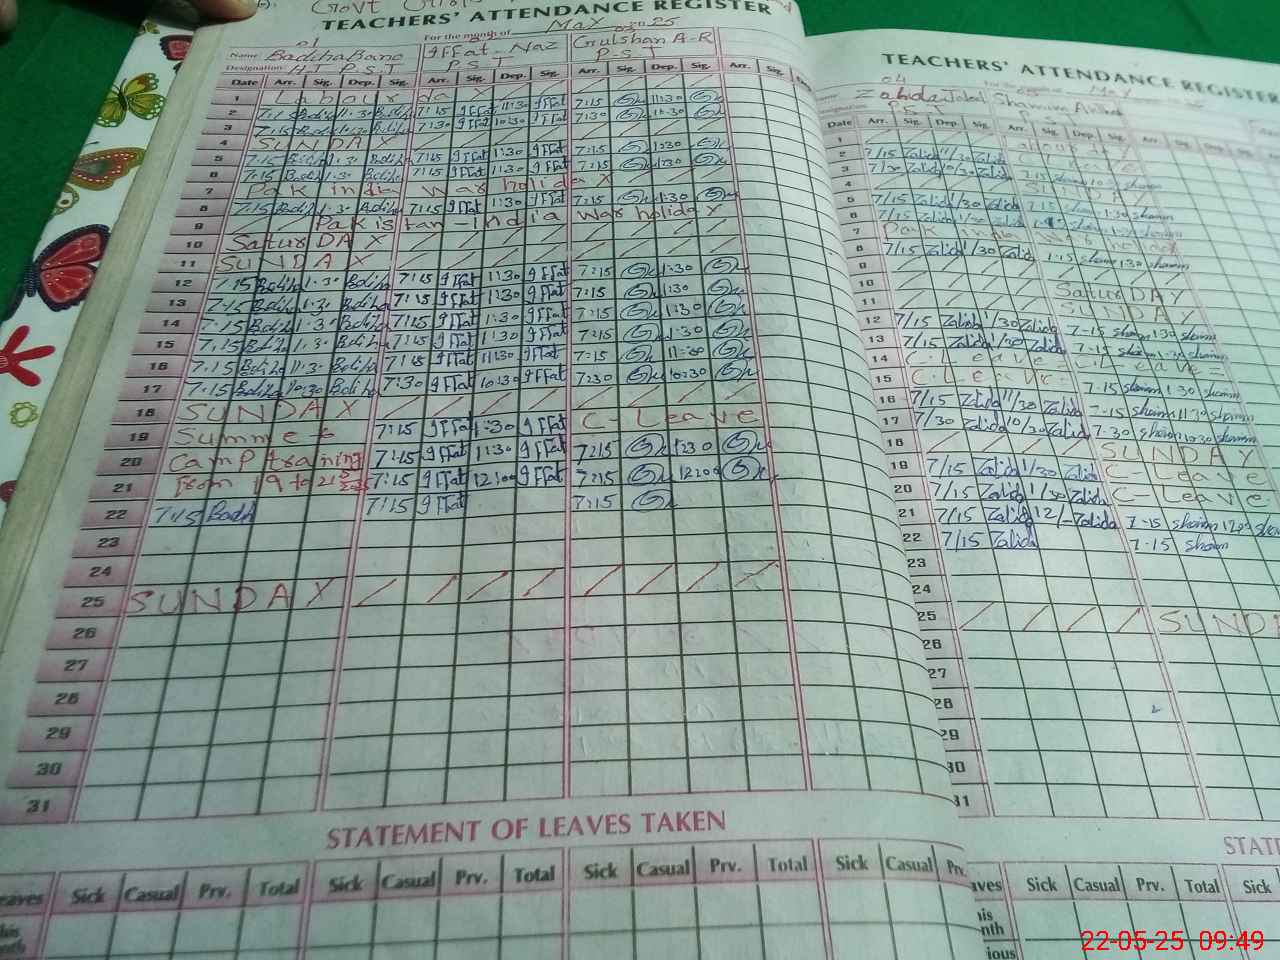 Govt Girls
TEACHERS' ATTENDANCE REGISTER
For the month of May 2025
01
Name: Badiha Bano Iffat-Naz Gulshan A-R
Designation: H.T P.S.T P.S.T P.S.T
Date Arr. Sig. Dep. Sig. Arr. Sig. Dep. Sig. Arr. Sig. Dep. Sig. Arr. Sig. Dep.
1 Labour Day
2 7:15 Badiha 1:30 Badiha 7:15 Iffat 11:30 Iffat 7:15 11:30
3 7:15 Badiha Badiha 7:30 Iffat 10:30 Iffat 7:30 10:30
4 SUNDAY
5 7:15 1:30 Badiha 7:15 Iffat 1:30 Iffat 7:15 1:30
6 7:15 Badiha 1:30 Badiha 7:15 Iffat 1:30 Iffat 7:15 1:30
7 Pak india War holiday
8 7:15 Badiha 1:30 Badiha 7:15 Iffat 1:30 Iffat 7:15 1:30
9 Pakistan-india War holiday
10 SaturDAY
11 SUNDAY
12 7:15 Badiha 1:30 Badiha 7:15 Iffat 1:30 Iffat 7:15 1:30
13 7:15 Badiha 1:30 Badiha 7:15 Iffat 1:30 Iffat 7:15 1:30
14 7:15 Badiha 1:30 Badiha 7:15 Iffat 1:30 Iffat 7:15 1:30
15 7:15 Badiha 1:30 Badiha 7:15 Iffat 1:30 Iffat 7:15 1:30
16 7:15 Badiha 11:30 Badiha 7:15 Iffat 11:30 Iffat 7:15
17 7:15 Badiha 10:30 Badiha 7:30 Iffat 10:30 Iffat 7:30 10:30
18 SUNDAY
19 Summer 7:15 Iffat 1:30 Iffat C-Leave
20 camp training 7:15 Iffat 1:30 Iffat 7:15 1:30
21 from 19 to 21 7:15 Iffat 12:00 Iffat 7:15 12:00
22 7:15 Badih 7:15 Iffat 7:15
23
24
25 SUNDAY
26
27
28
29
30
31
STATEMENT OF LEAVES TAKEN
Sick Casual Prv. Total Sick Casual Prv. Total Sick Casual Prv. Total Sick Casual Prv.
TEACHERS' ATTENDANCE REGISTER
04 May
Zahida Shamim
P.S.T
Date Arr. Sig. Dep. Sig. Arr. Sig. Dep. Sig. Arr. Sig. Dep. Sig.
1
2 7/15 Zahida 11/30 Zahida C-Leave
3 7/30 Zahida 10/30 Zahida 7-15 shamm 10:30 shamm
4 SUNDAY
5 7/15 Zahida 1/30 Zahida 7-15 shamm 1:30 shamm
6 7/15 Zahida 1/30 Zahida shamm 1:30 shamm
7 Pak india War holiday
8 7/15 Zahida 1/30 Zahida 7-15 shamm 1:30 shamm
9
10 SaturDAY
11 SUNDAY
12 7/15 Zahida 1/30 Zahida 7-15 shamm 1:30 shamm
13 7/15 Zahida 1/30 Zahida 7-15 shamm 1:30 shamm
14 C.Leave C-Leave
15 C.Leave 7-15 shamm 1:30 shamm
16 7/15 Zahida 11/30 Zahida 7-15 shamm 11:30 shamm
17 7/30 Zahida 10/30 Zahida 7-30 shamm 10:30 shamm
18 SUNDAY
19 7/15 Zahida 1/30 Zahida C-Leave
20 7/15 Zahida 1/30 Zahida C-Leave
21 7/15 Zahida 12/- Zahida 7-15 shamm 12:00
22 7/15 Zahida 7-15 shamm
23
24
25 SUND
26
27
28
29
30
31
Sick Casual Prv. Total Sick
22-05-25 09:49